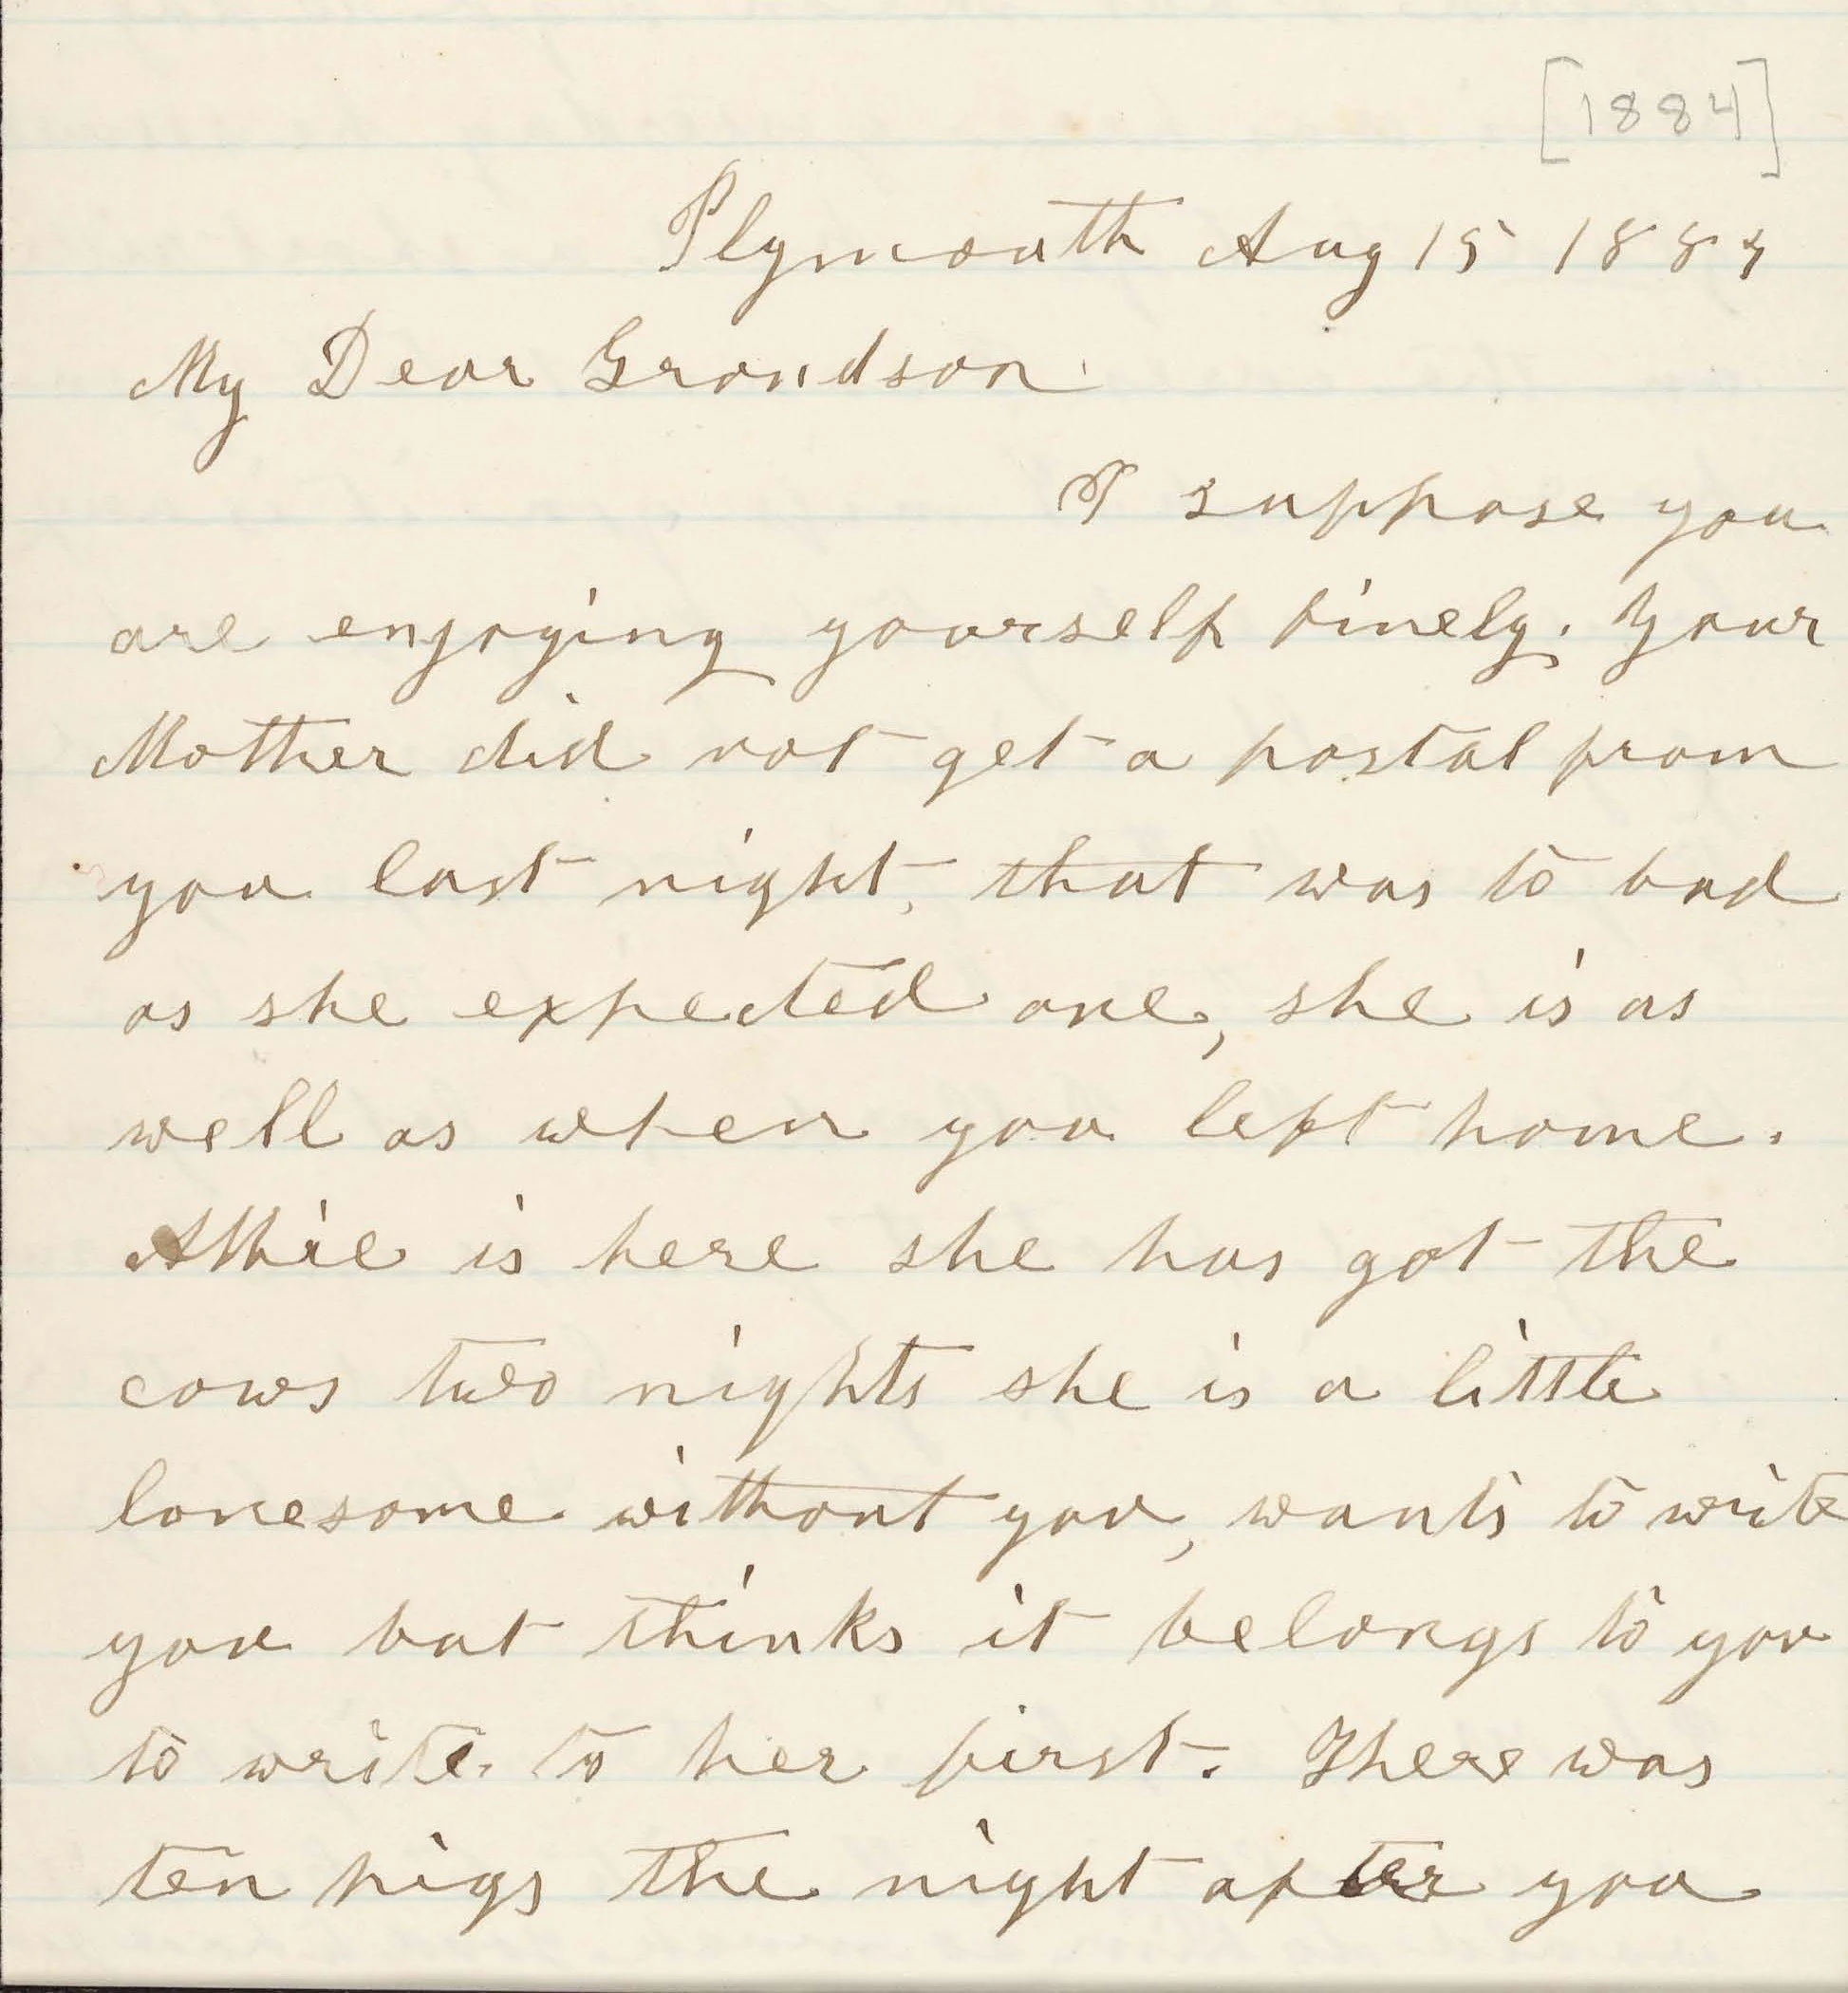 [1884]
Plymouth Aug 15 1884
My Dear Grandson
I suppose you
are enjoying yourself finely. Your
Mother did not get a postal from
you last night, that was to bad
as she expected one, she is as
well as when you left home.
Abbie is here she has got the
cows two nights she is a little
lonesome without you, wants to write
you but thinks it belongs to you
to write to her first. There was
ten pigs the night after you